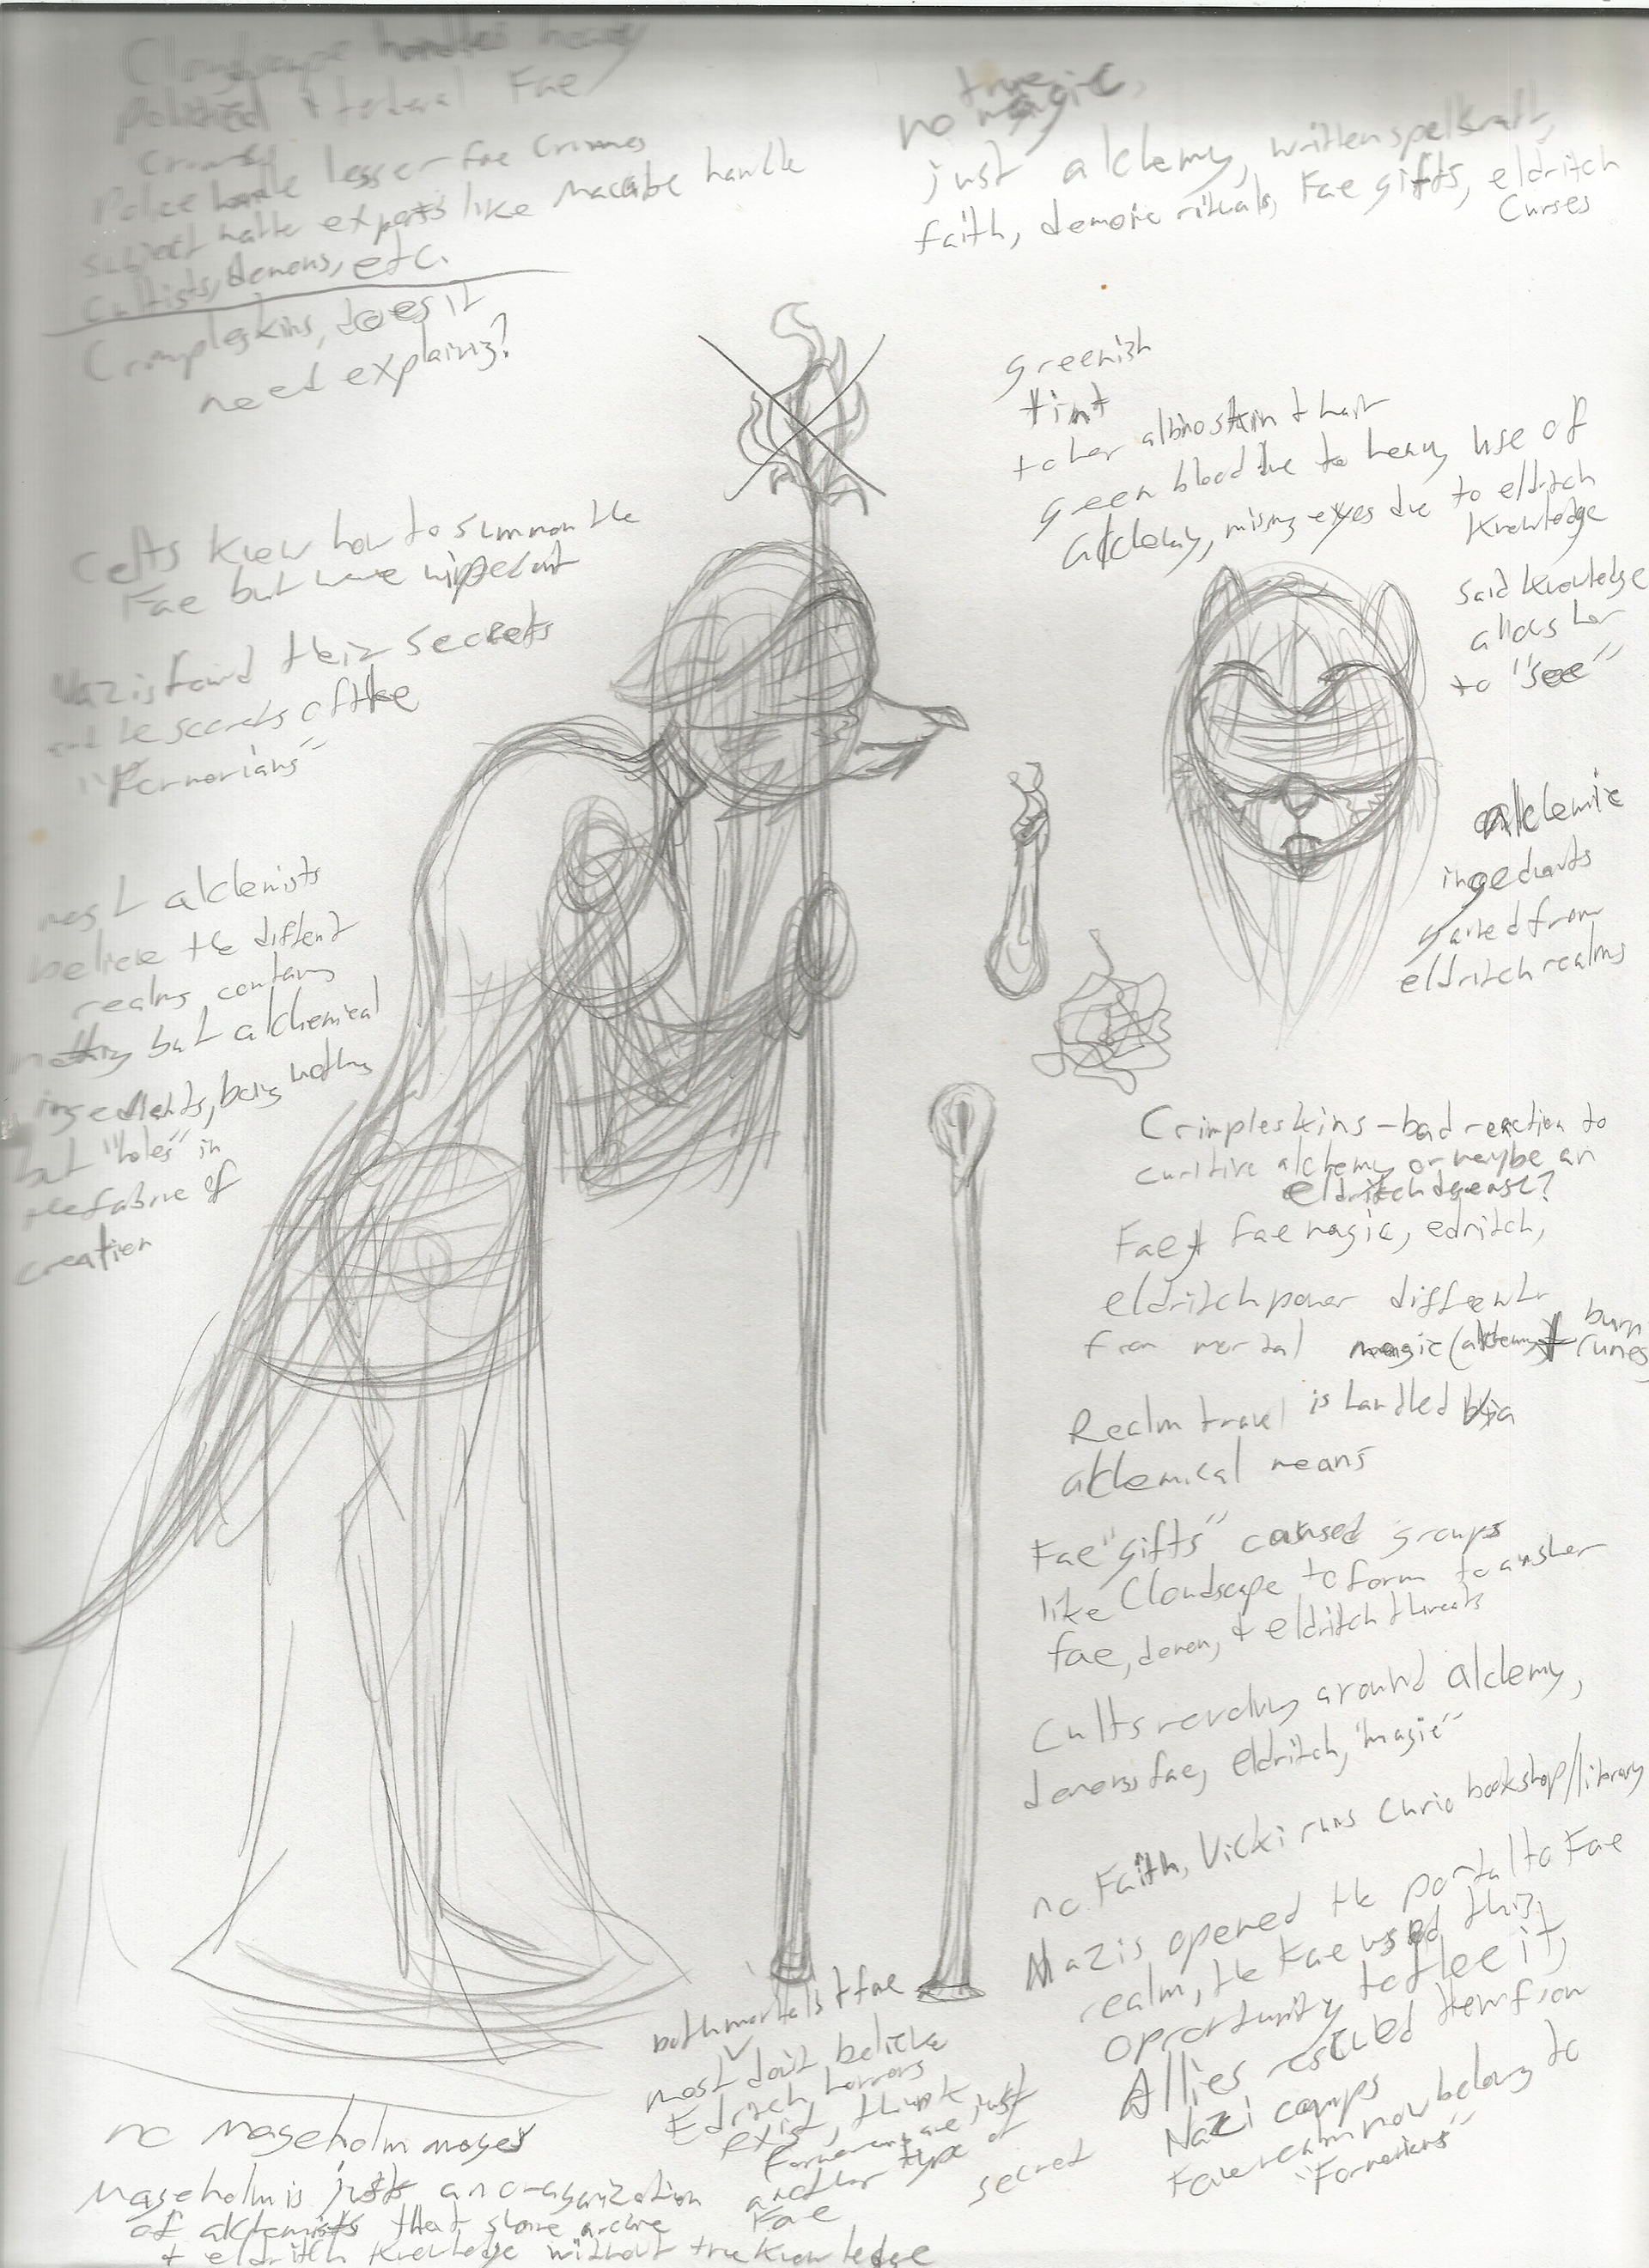 Cloudscape handles heavy
Political & federal Fae
Crimes
Police handle lesser fae crimes
subject matte experts like Macabe handle
Cultists, demons, etc.
Crimpleskins, does it
need explaining?
true
no magic,
just alchemy, written spellcraft,
faith, demonic rituals, Fae gifts, eldritch
Curses
greenish
tint
to her albino skin & hair
green blood due to heavy use of
alchemy, missing eyes due to eldritch
knowledge
Said knowledge
allows her
to "see"
Celts knew how to summon the
Fae but were wiped out
Nazis found their secrets
and the secrets of the
"Formorians"
most alchemists
believe the different
realms contain
nothing but alchemical
ingredients, being nothing
but "holes" in
the fabric of
creation
alchemic
ingredients
gained from
eldritch realms
Crimpleskins - bad reaction to
curitive alchemy or maybe an
eldritch disease?
Fae & fae magic, edritch,
eldritch power different
from mortal magic (alchemy) & burn
runes
Realm travel is handled via
alchemical means
Fae "gifts" caused groups
like Cloudscape to form to answer
fae, demon, & eldritch threats
Cults revolving around alchemy,
demons, fae, eldritch, "magic"
no Faith, Vicki runs curio bookshop/library
Nazis opened the portal to Fae
realm, the Fae used this
opportunity to flee it,
Allies rescued them from
Nazi camps
Fae realm now belong to
"Formorians"
secret
both mortals & fae
most don't believe
Eldritch horrors
exist, think just
Formorians are
another type of
Fae
no Maseholm mages
Maseholm is just an organization
of alchemists that store arcane
& eldritch knowledge without true knowledge